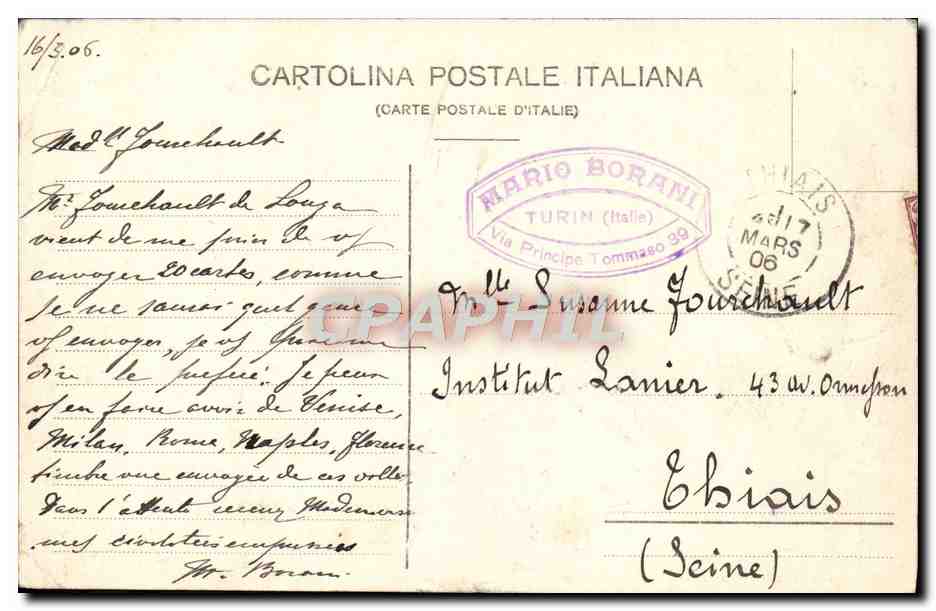 16/3.06.
CARTOLINA POSTALE ITALIANA
(CARTE POSTALE D'ITALIE)
Mad^lle Fourchault
M^r Fourchault de Longa
vient de me prier de v/
envoyer 20 cartes, comme
je ne saurai quel genre
v/ envoyer, je v/ prie me
dire le préféré. Je peux
v/ en faire avoir de Venise,
Milan, Rome, Naples, Florence
timbre vue envoyée de ces villes.
Dans l'attente recevez Mademoise
mes civilités empressées
M. Borani
MARIO BORANI
TURIN (Italie)
Via Principe Tommaso 39
THIAIS
17
MARS
06
SEINE
M^lle Susanne Fourchault
Institut Lanier. 43 av. Ormesson
Thiais
(Seine)
CPAPHIL